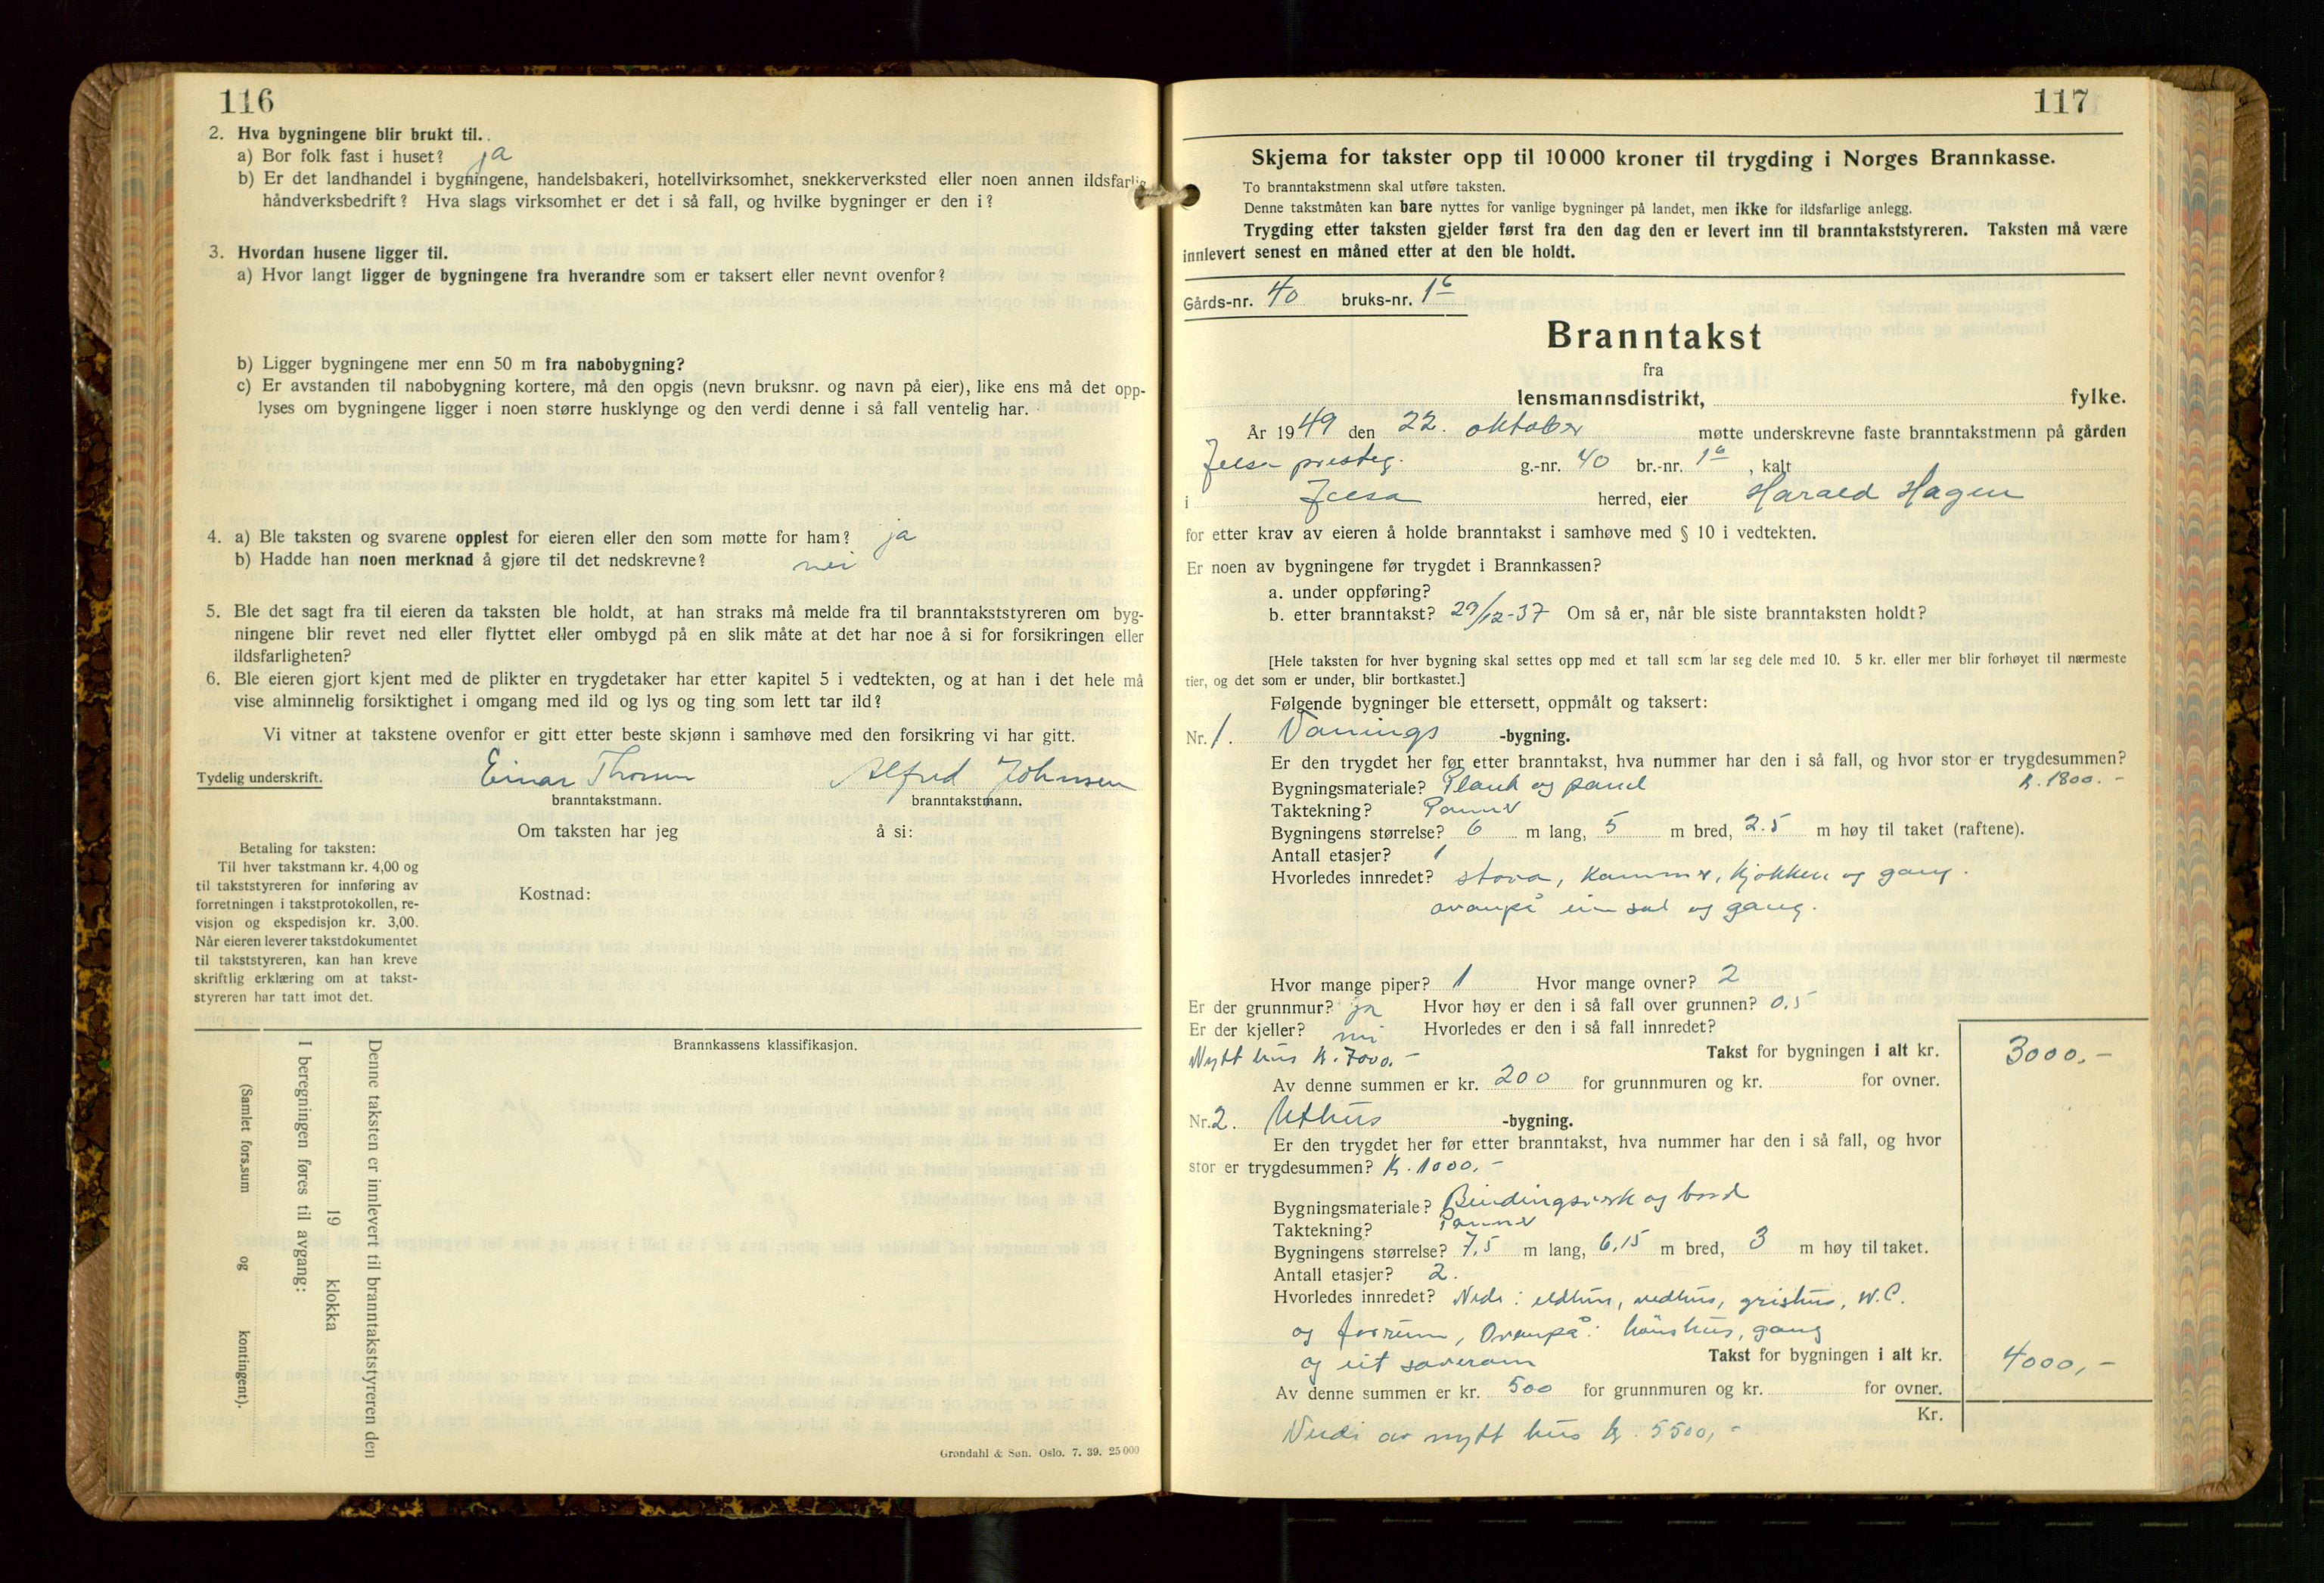 116
2. Hva bygningene blir brukt til.
a) Bor folk fast i huset? ja
b) Er det landhandel i bygningene, handelsbakeri, hotellvirksomhet, snekkerverksted eller noen annen ildsfarlig
håndverksbedrift? Hva slags virksomhet er det i så fall, og hvilke bygninger er den i?
3. Hvordan husene ligger til.
a) Hvor langt ligger de bygningene fra hverandre som er taksert eller nevnt ovenfor?
b) Ligger bygningene mer enn 50 m fra nabobygning?
c) Er avstanden til nabobygning kortere, må den opgis (nevn bruksnr. og navn på eier), like ens må det opp-
lyses om bygningene ligger i noen større husklynge og den verdi denne i så fall ventelig har.
4. a) Ble taksten og svarene opplest for eieren eller den som møtte for ham? ja
b) Hadde han noen merknad å gjøre til det nedskrevne? nei
5. Ble det sagt fra til eieren da taksten ble holdt, at han straks må melde fra til branntakststyreren om byg-
ningene blir revet ned eller flyttet eller ombygd på en slik måte at det har noe å si for forsikringen eller
ildsfarligheten?
6. Ble eieren gjort kjent med de plikter en trygdetaker har etter kapitel 5 i vedtekten, og at han i det hele må
vise alminnelig forsiktighet i omgang med ild og lys og ting som lett tar ild?
Vi vitner at takstene ovenfor er gitt etter beste skjønn i samhøve med den forsikring vi har gitt.
Tydelig underskrift. Einar Thorsen Alfred Johnsen
branntakstmann. branntakstmann.
Om taksten har jeg å si:
Betaling for taksten:
Til hver takstmann kr. 4,00 og
til takststyreren for innføring av
forretningen i takstprotokollen, re-
visjon og ekspedisjon kr. 3,00.
Når eieren leverer takstdokumentet
til takststyreren, kan han kreve
skriftlig erklæring om at takst-
styreren har tatt imot det.
Kostnad:
Brannkassens klassifikasjon.
Denne taksten er innlevert til branntakststyreren den
19 klokka
I beregningen føres til avgang:
(Samlet fors.sum og kontingent).
Grøndahl & Søn. Oslo. 7. 39. 25 000
117
Skjema for takster opp til 10 000 kroner til trygding i Norges Brannkasse.
To branntakstmenn skal utføre taksten.
Denne takstmåten kan bare nyttes for vanlige bygninger på landet, men ikke for ildsfarlige anlegg.
Trygding etter taksten gjelder først fra den dag den er levert inn til branntakststyreren. Taksten må være
innlevert senest en måned etter at den ble holdt.
Gårds-nr. 40 bruks-nr. 16
Branntakst
fra
lensmannsdistrikt, fylke.
År 1949 den 22. oktober møtte underskrevne faste branntakstmenn på gården
Jelsa presteg. g.-nr. 40 br.-nr. 16, kalt
i Jelsa herred, eier Harald Hagen
for etter krav av eieren å holde branntakst i samhøve med § 10 i vedtekten.
Er noen av bygningene før trygdet i Brannkassen?
a. under oppføring?
b. etter branntakst? 29/12-37 Om så er, når ble siste branntaksten holdt?
[Hele taksten for hver bygning skal settes opp med et tall som lar seg dele med 10. 5 kr. eller mer blir forhøyet til nærmeste
tier, og det som er under, blir bortkastet.]
Følgende bygninger ble ettersett, oppmålt og taksert:
Nr. 1. Vånings -bygning.
Er den trygdet her før etter branntakst, hva nummer har den i så fall, og hvor stor er trygdesummen?
Bygningsmateriale? Plank og panel K. 1800.-
Taktekning? Panner
Bygningens størrelse? 6 m lang, 5 m bred, 2.5 m høy til taket (raftene).
Antall etasjer? 1
Hvorledes innredet? stova, kammer, kjøkken og gang.
ovanpå ein sal og gang.
Hvor mange piper? 1 Hvor mange ovner? 2
Er der grunnmur? ja Hvor høy er den i så fall over grunnen? 0.5
Er der kjeller? nei Hvorledes er den i så fall innredet?
Nytt hus k. 7000.- Takst for bygningen i alt kr. 3000,-
Av denne summen er kr. 200 for grunnmuren og kr. for ovner.
Nr. 2. Uthus -bygning.
Er den trygdet her før etter branntakst, hva nummer har den i så fall, og hvor
stor er trygdesummen? K. 1000,-
Bygningsmateriale? Bindingsverk og bord
Taktekning? Panner
Bygningens størrelse? 7,5 m lang, 6,15 m bred, 3 m høy til taket.
Antall etasjer? 2.
Hvorledes innredet? Nede: eldhus, vedhus, grishus, W.C.
og forrum, Ovanpå: hønshus, gang
og eit soverom Takst for bygningen i alt kr. 4000,-
Av denne summen er kr. 500 for grunnmuren og kr. for ovner.
Kr.
Verdi av nytt hus k. 5500,-